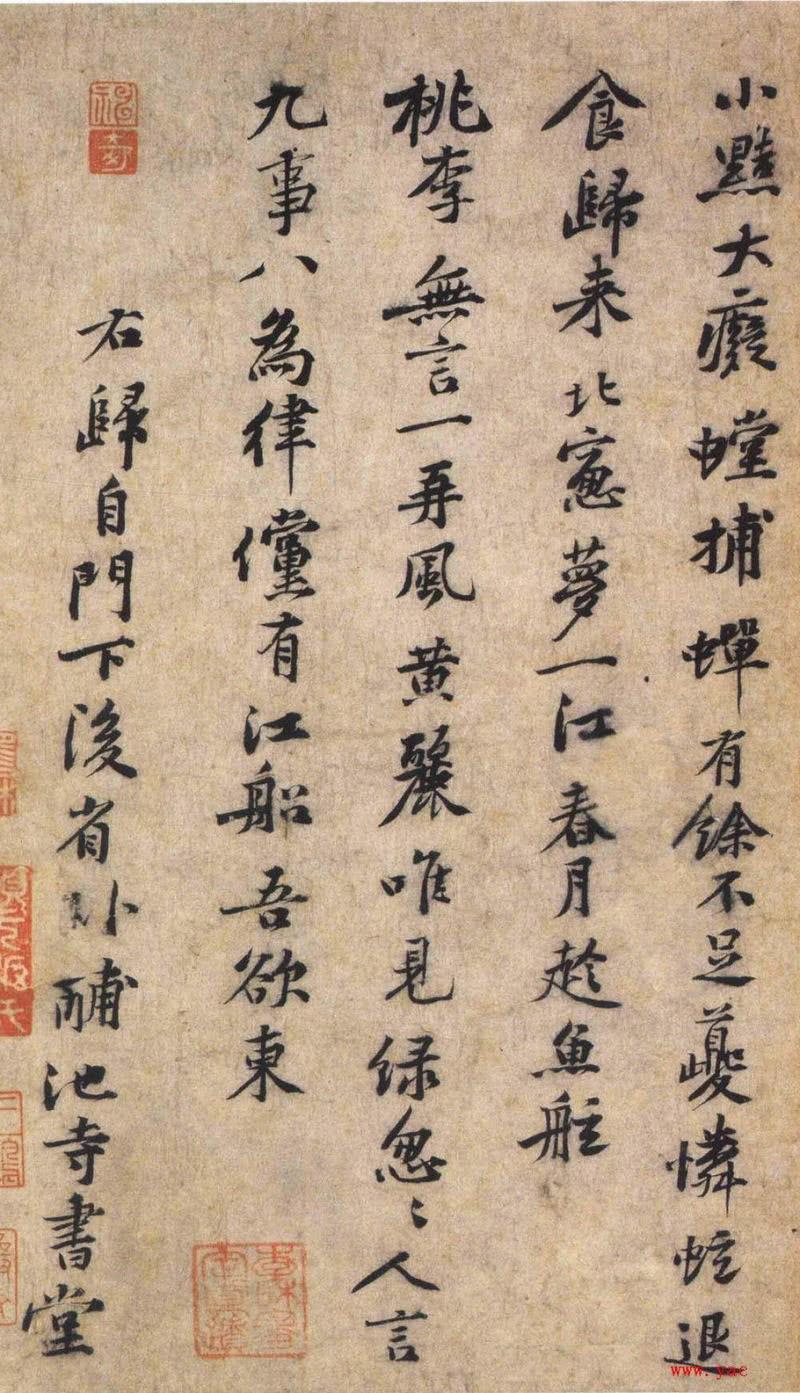 小黠大癡螳捕蟬有餘不足夔憐蚿退
食歸来北窓夢一江春月趂魚舡
桃李無言一再風黄麗唯見緑怱〻人言
九事八為律儻有江船吾欲東
右歸自門下後省卧酺池寺書堂
www.yac